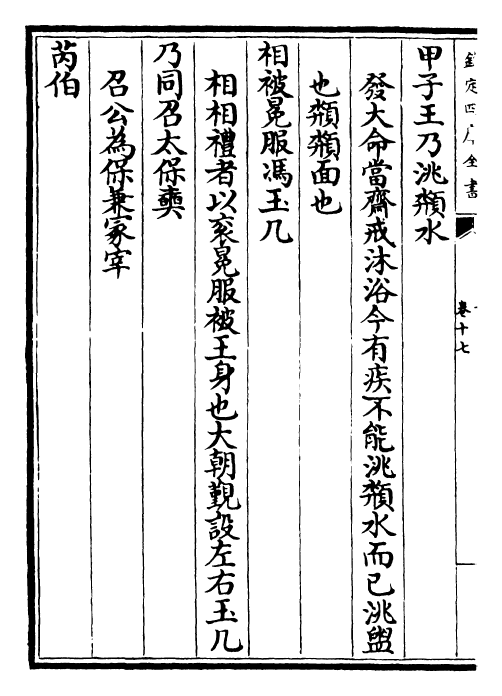 欽定四庫全書
卷十七
甲子王乃洮頮水
發大命當齋戒沐浴今有疾不能洮頮水而已洮盥
也頮頮面也
相被冕服馮玉几
相相禮者以衮冕服被王身也大朝覲設左右玉几
乃同召太保奭
召公為保兼冢宰
芮伯